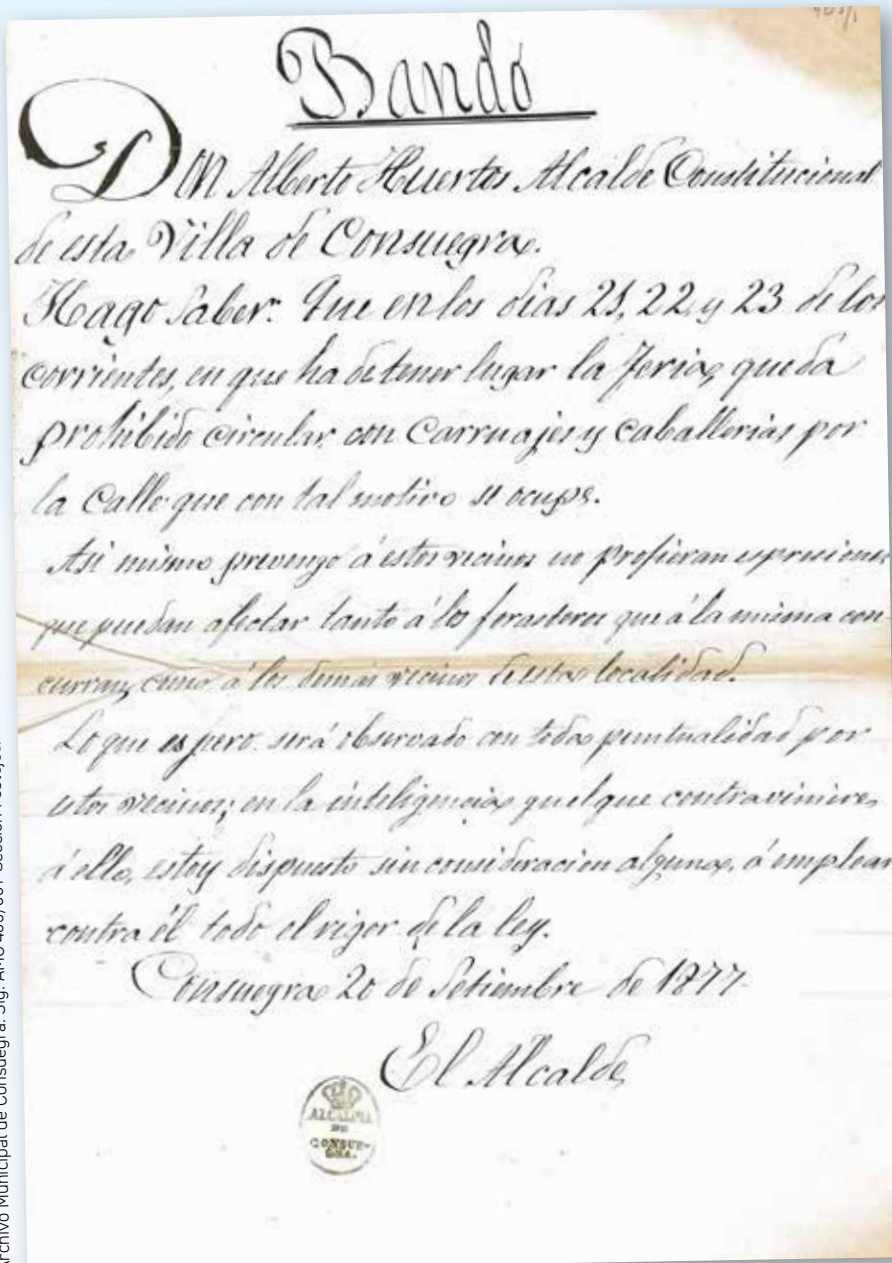 Bando
Don Alberto Huertos Alcalde Constitucional
de esta Villa de Consuegra.
Hago Saber: Que en los dias 21, 22 y 23 de los
corrientes, en que ha de tener lugar la Feria, queda
prohibido circular con Carruajes y Caballerias por
la Calle que con tal motivo se ocupe.
Asi mismo prevengo á estos vecinos no profieran espresiones
que puedan afectar tanto á los forasteros que á la misma con
curran, como á los demas vecinos de esta localidad.
Lo que espero será observado con toda puntualidad por
estos vecinos; en la inteligencia, que el que contraviniere
á ello, estoy dispuesto sin consideracion alguna, á emplear
contra él todo el rigor de la ley.
Consuegra 20 de Setiembre de 1877.
El Alcalde,
ALCALDIA
DE
CONSUE-
GRA.
Archivo Municipal de Consuegra. Sig. AMC